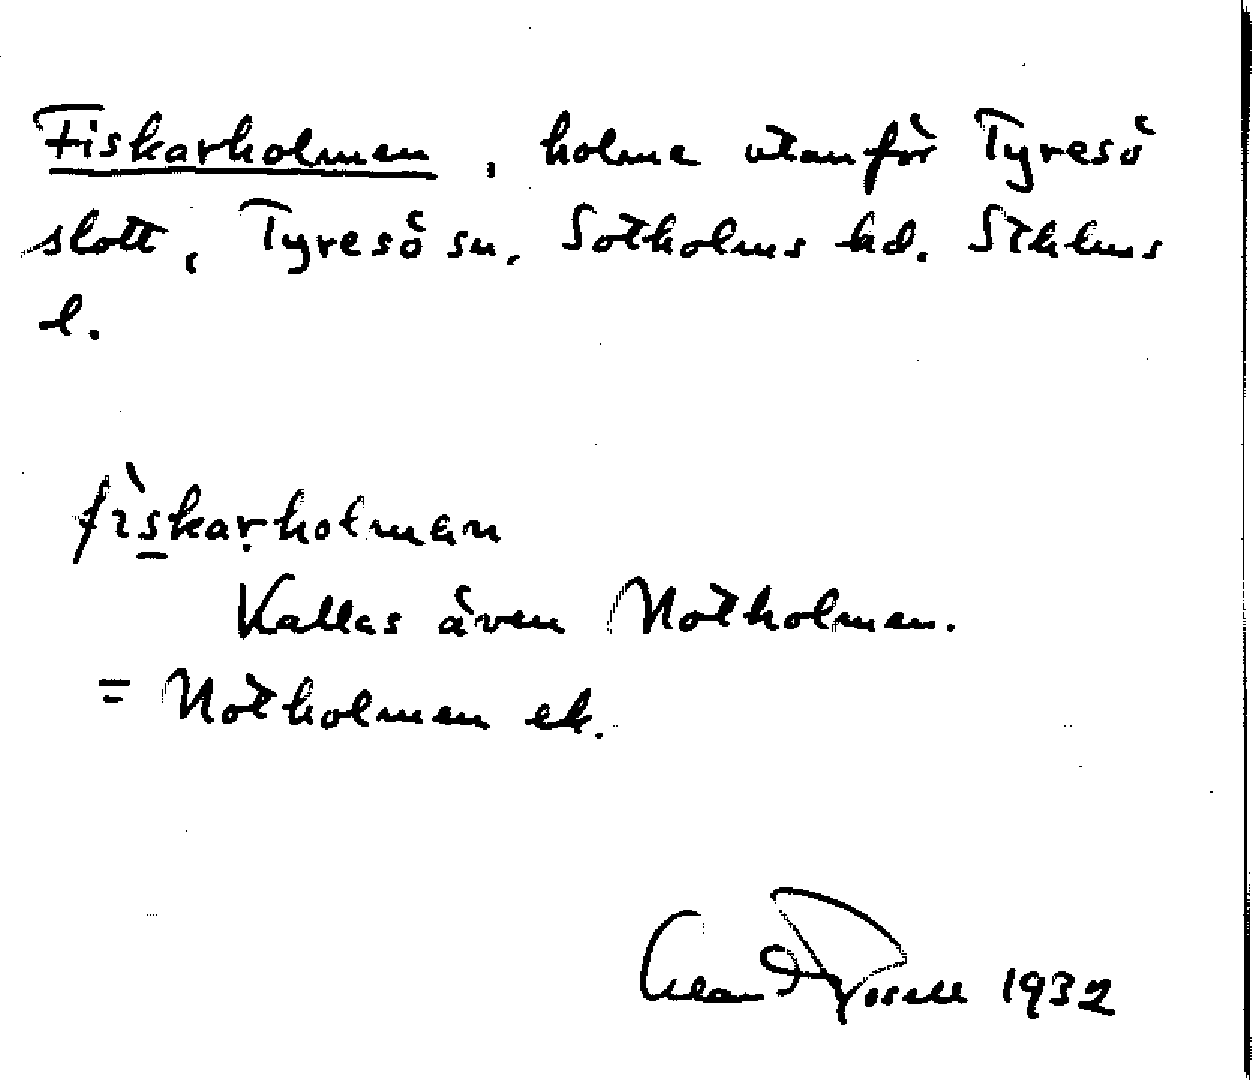 Fiskarholmen, holme utanför Tyresö
slott, Tyresö sn, Sotholms hd. Sthlms
l.
fìskarholman
Kallas även Notholmen.
= Notholmen ek.
1932